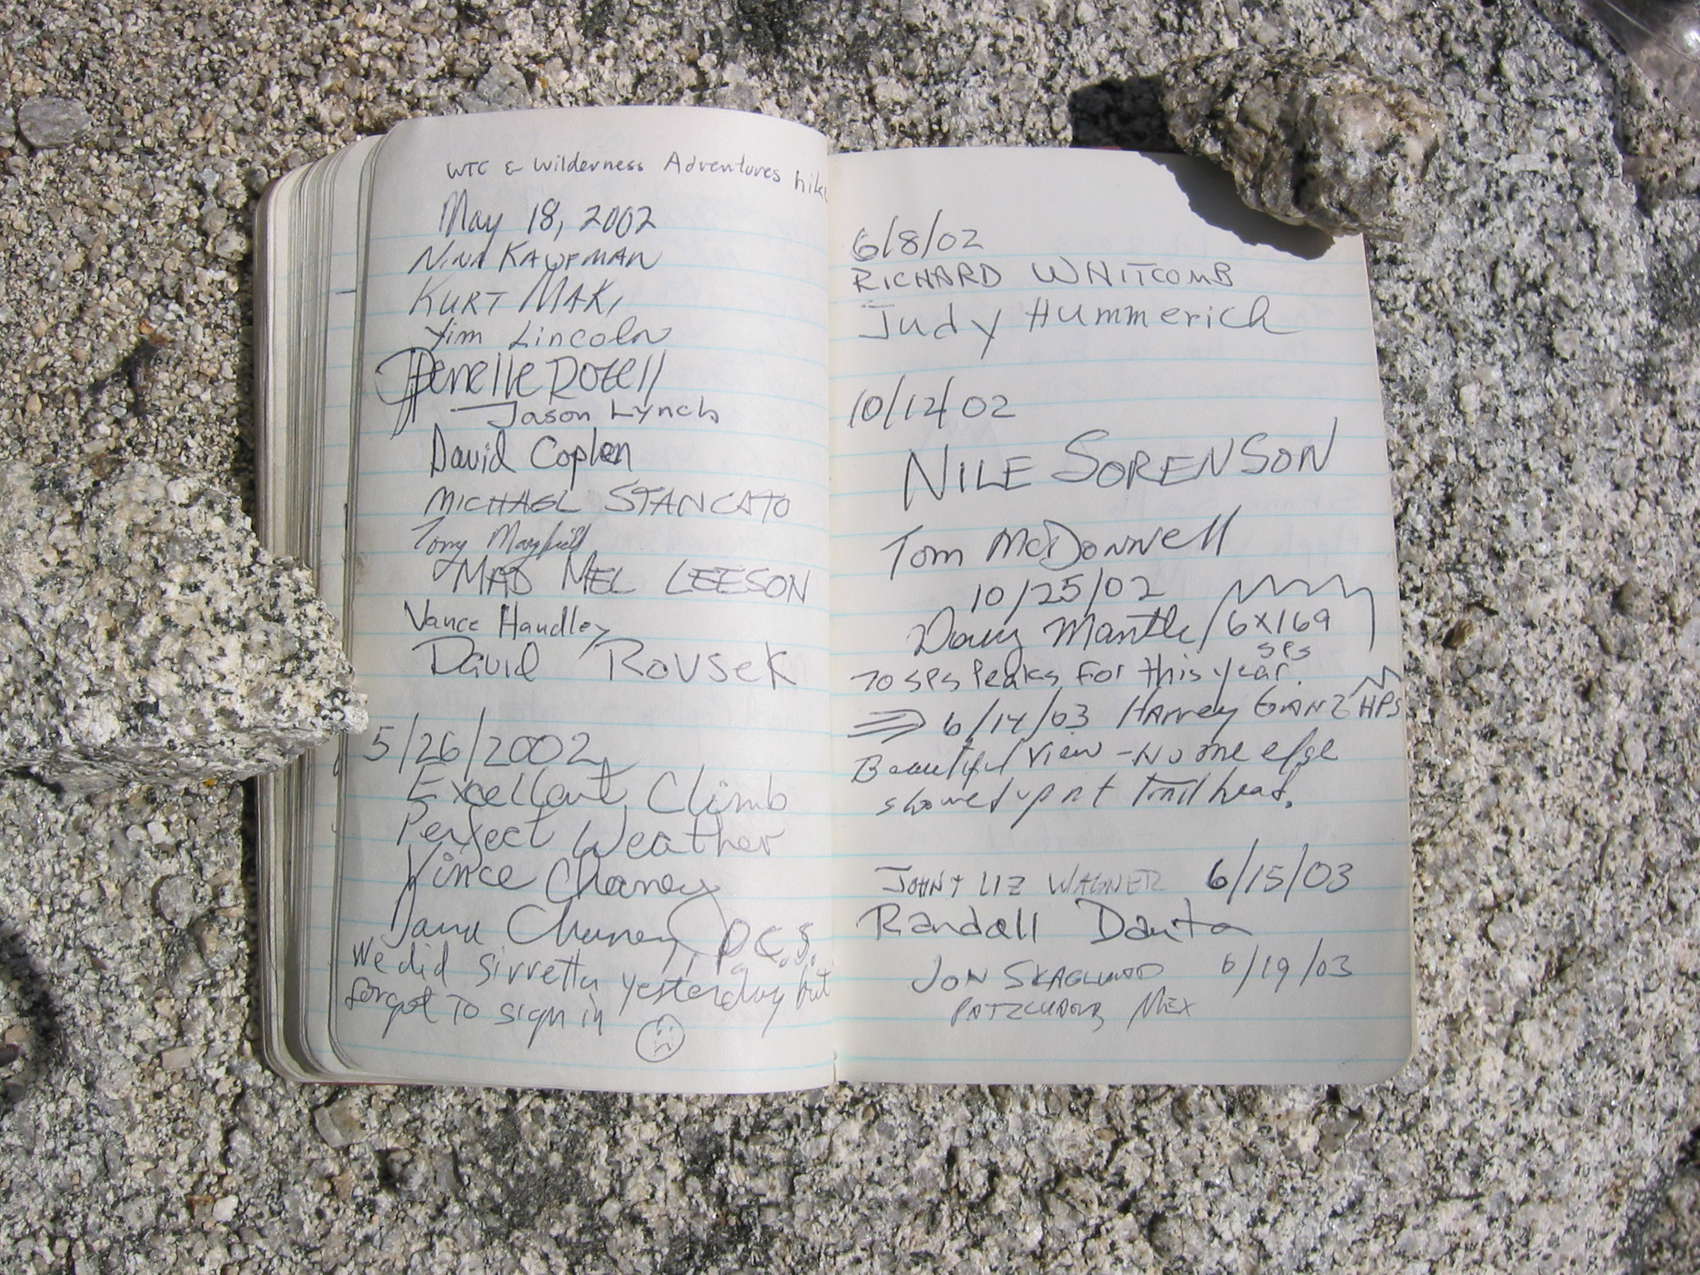 WTC & Wilderness Adventures hike
May 18, 2002
NINA KAUFMAN
KURT MAKI
Jim Lincoln
Penelle Dozell
Jason Lynch
David Coplen
MICHAEL STANCATO
Tony Mayfield
MAD MEL LEESON
Vance Handley
David Rousek
5/26/2002
Excellant Climb
Perfect Weather
Vince Chaney
Chaney, D.C.S.
We did Sirretta yesterday but
forgot To sign in
6/8/02
RICHARD WHITCOMB
Judy Hummerich
10/12/02
NILE SORENSON
Tom McDonnell
10/25/02
Doug Mantle / 6X169
SPS
70 SPS Peaks For this year.
6/14/03 Harvey GANZ HPS
Beautiful view - No one else
showed up at trail head.
JOHN + LIZ WAGNER 6/15/03
Randall Danta
JON SKAGLUND 6/19/03
MEX